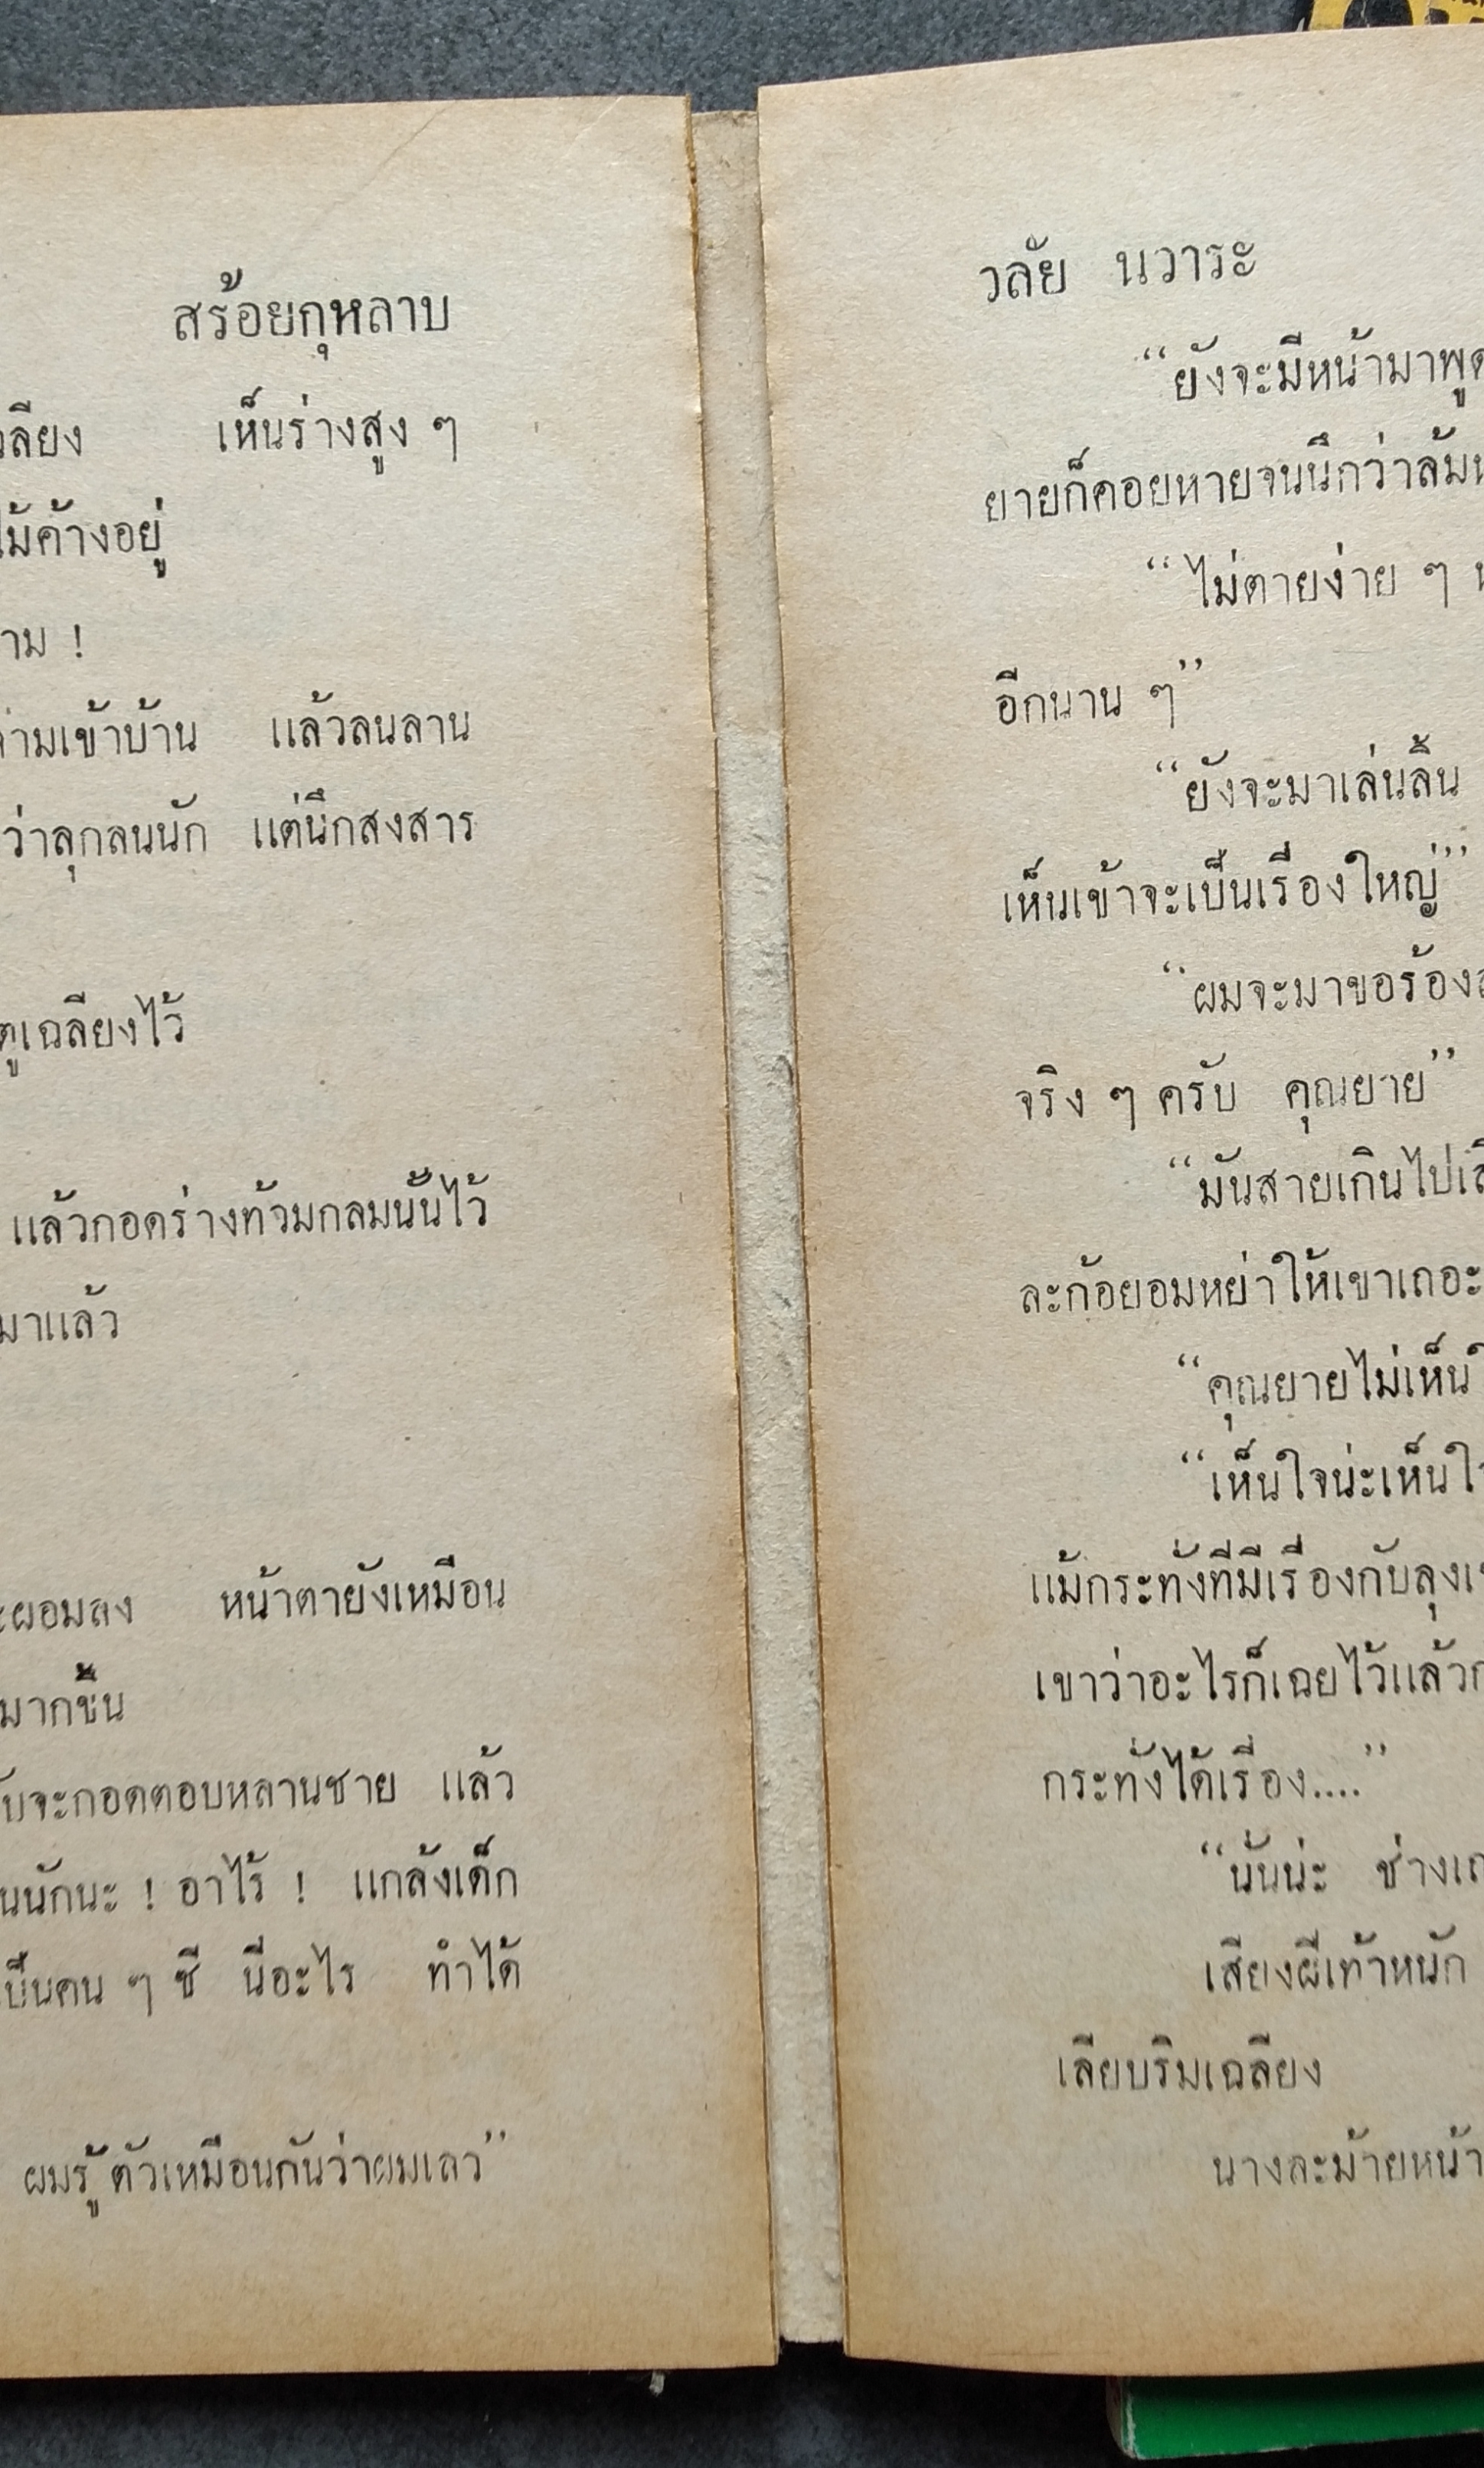 สร้อยกุหลาบ
เห็นร่างสูง ๆ
ค้างอยู่
!
เข้าบ้าน แล้วลนลาน
ว่าลุกลนนัก แต่นึกสงสาร
เฉลียงไว้
แล้วกอดร่างท้วมกลมนั้นไว้
มาแล้ว
ผอมลง หน้าตายังเหมือน
มากขึ้น
จะกอดตอบหลานชาย แล้ว
นักนะ ! อาไร้ ! แกล้งเด็ก
เป็นคน ๆ ซี นี่อะไร ทำได้
ผมรู้ตัวเหมือนกันว่าผมเลว”
วลัย นวาระ
“ยังจะมีหน้ามาพูด
ยายก็คอยหายจนนึกว่าล้ม
“ไม่ตายง่าย ๆ
อีกนาน ๆ”
“ยังจะมาเล่นลิ้น
เห็นเข้าจะเป็นเรื่องใหญ่”
“ผมจะมาขอร้อง
จริง ๆ ครับ คุณยาย”
“มันสายเกินไป
ละก้อยอมหย่าให้เขาเถอะ
“คุณยายไม่เห็น
“เห็นใจน่ะเห็น
แม้กระทั่งที่มีเรื่องกับลุง
เขาว่าอะไรก็เฉยไว้แล้ว
กระทั่งได้เรื่อง....”
“นั่นน่ะ ช่าง
เสียงฝีเท้าหนัก
เลียบริมเฉลียง
นางละม้ายหน้า